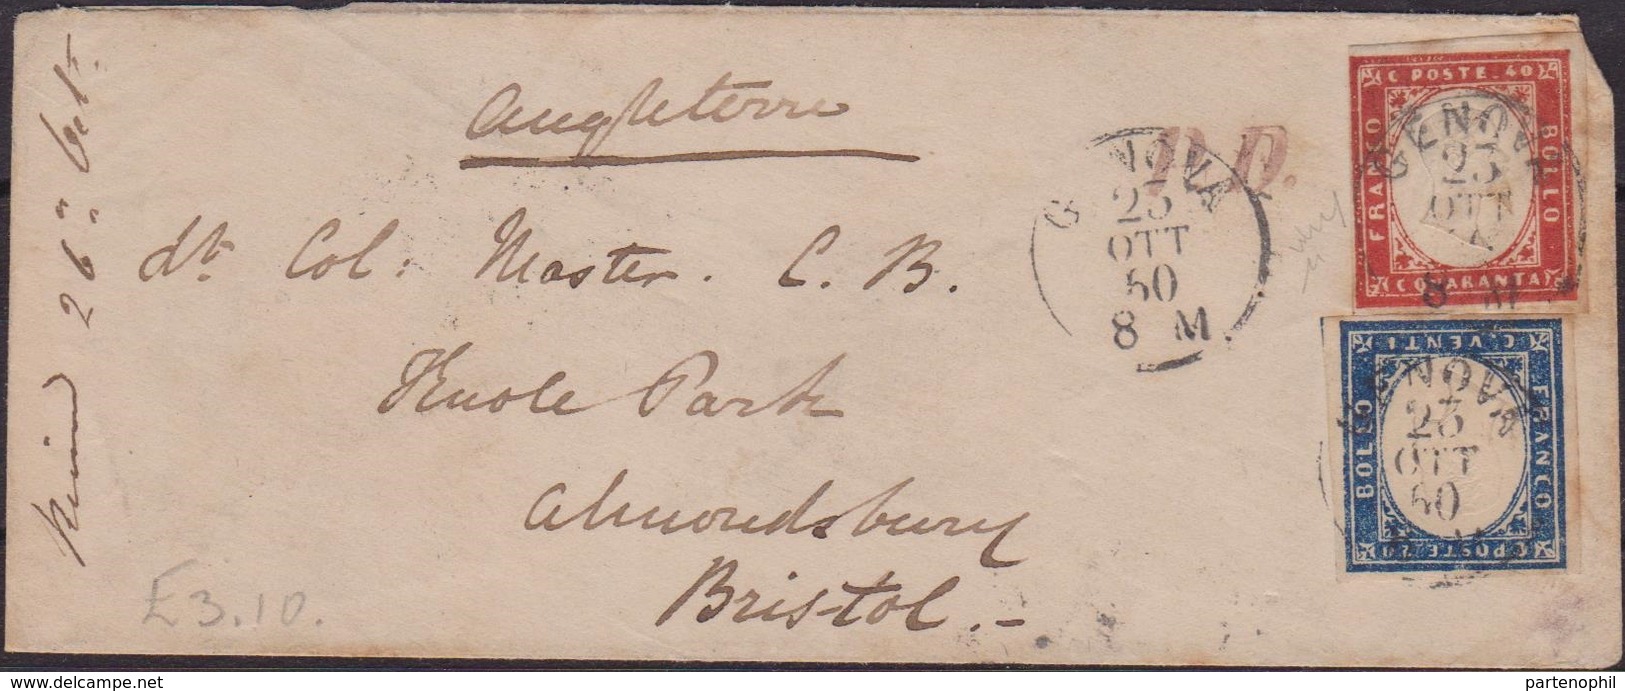 Angleterre
Lt. Col. Master. C. B.
Knole Park
Almondsbury
Bristol.-
26" Oct.
£3.10.
P.D.
GENOVA
25
OTT
60
8 M
C POSTE 40
FRANCO
BOLLO
C QUARANTA
GENOVA
25
OTT
8 M
C VENTI
BOLLO
FRANCO
C POSTE 20
GENOVA
25
OTT
60
www.delcampe.net
partenophil